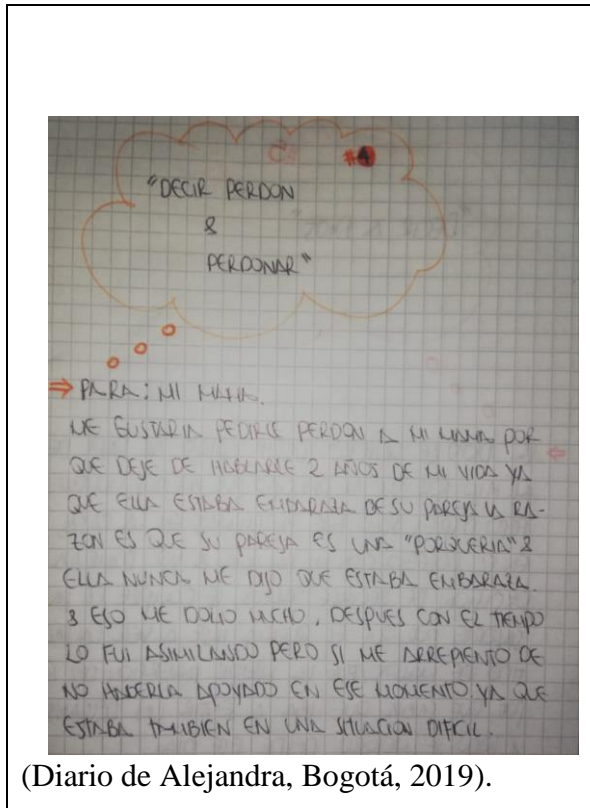 #4
"DECIR PERDON
&
PERDONAR"
⇒ PARA: MI MAMA.
ME GUSTARIA PEDIRLE PERDON A MI MAMA POR
QUE DEJE DE HABLARLE 2 AÑOS DE MI VIDA YA
QUE ELLA ESTABA EMBARAZA DE SU PAREJA LA RA-
ZON ES QUE SU PAREJA ES UNA "PORQUERIA" &
ELLA NUNCA ME DIJO QUE ESTABA EMBARAZA.
& ESO ME DOLIO MUCHO, DESPUES CON EL TIEMPO
LO FUI ASIMILANDO PERO SI ME ARREPIENTO DE
NO HABERLA APOYADO EN ESE MOMENTO YA QUE
ESTABA TAMBIEN EN UNA SITUACION DIFICIL.
(Diario de Alejandra, Bogotá, 2019).